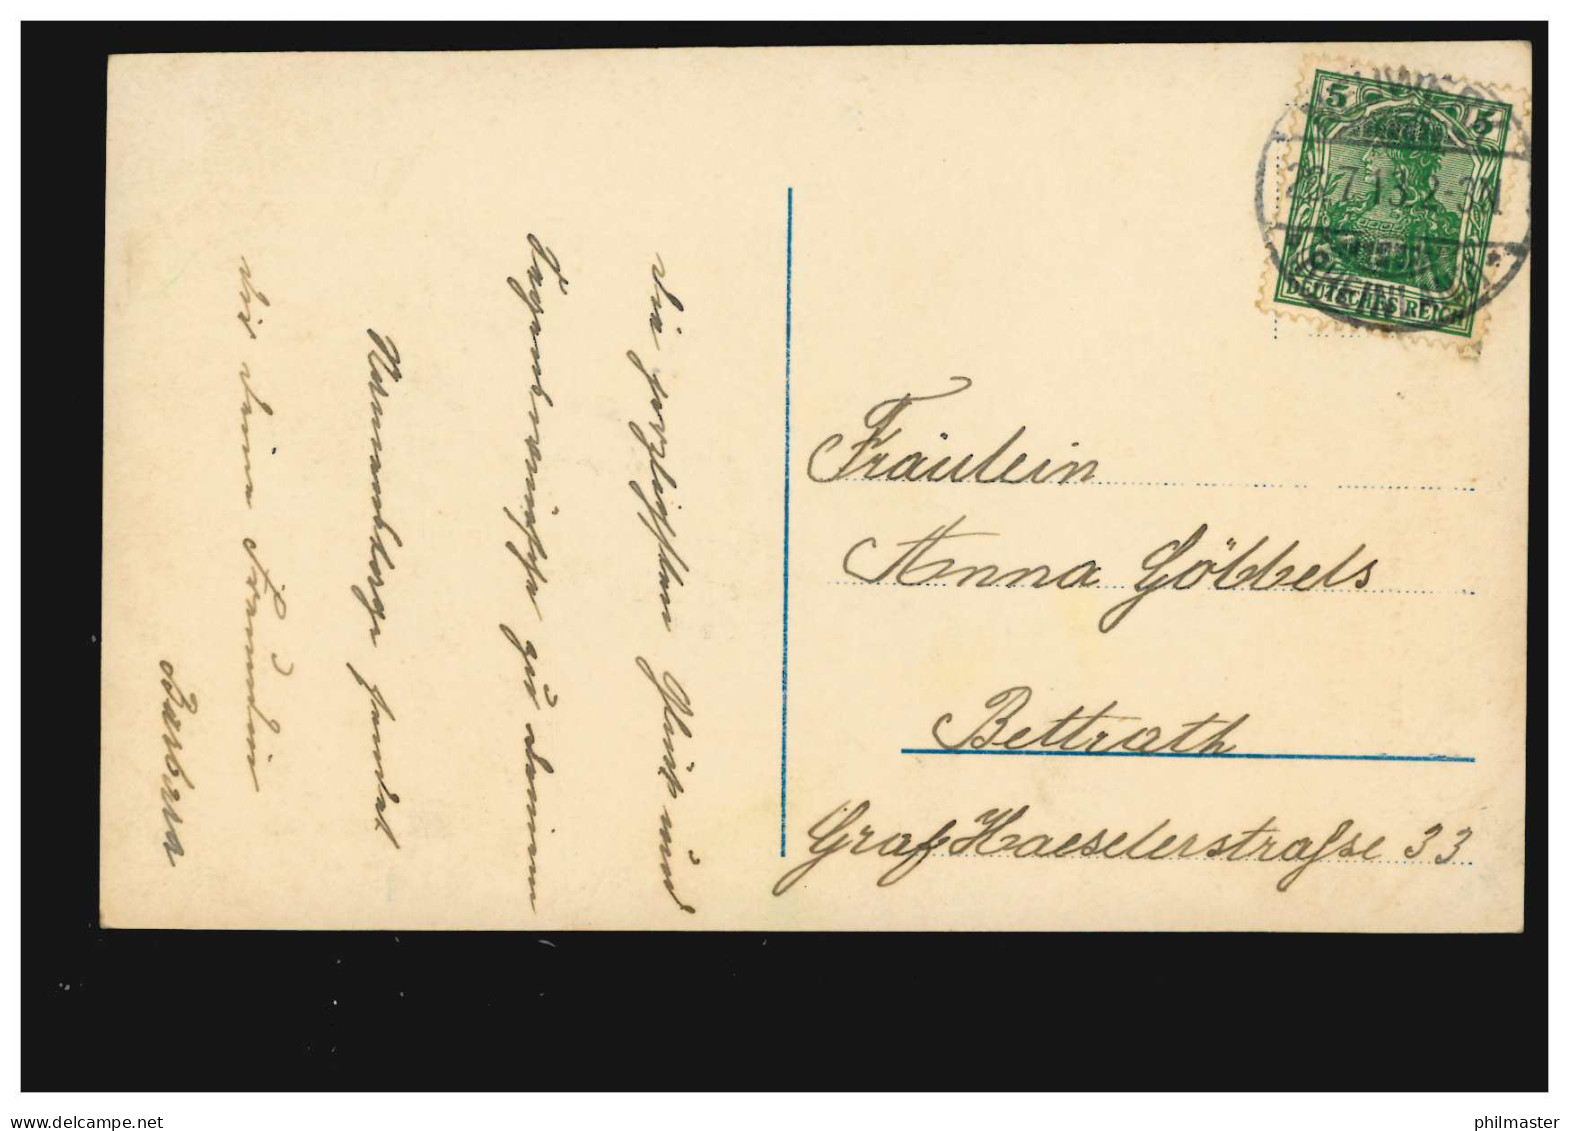 Die herzlichsten Glück und
Segenswünsche zu deinem
Namenstage sendet
dir deine Freundin
Barbara
5 5
7.13.2-3N
DEUTSCHES REICH
Fräulein
Anna Göbbels
Bettrath
Graf Haeselerstraße 33
www.delcampe.net
philmaster